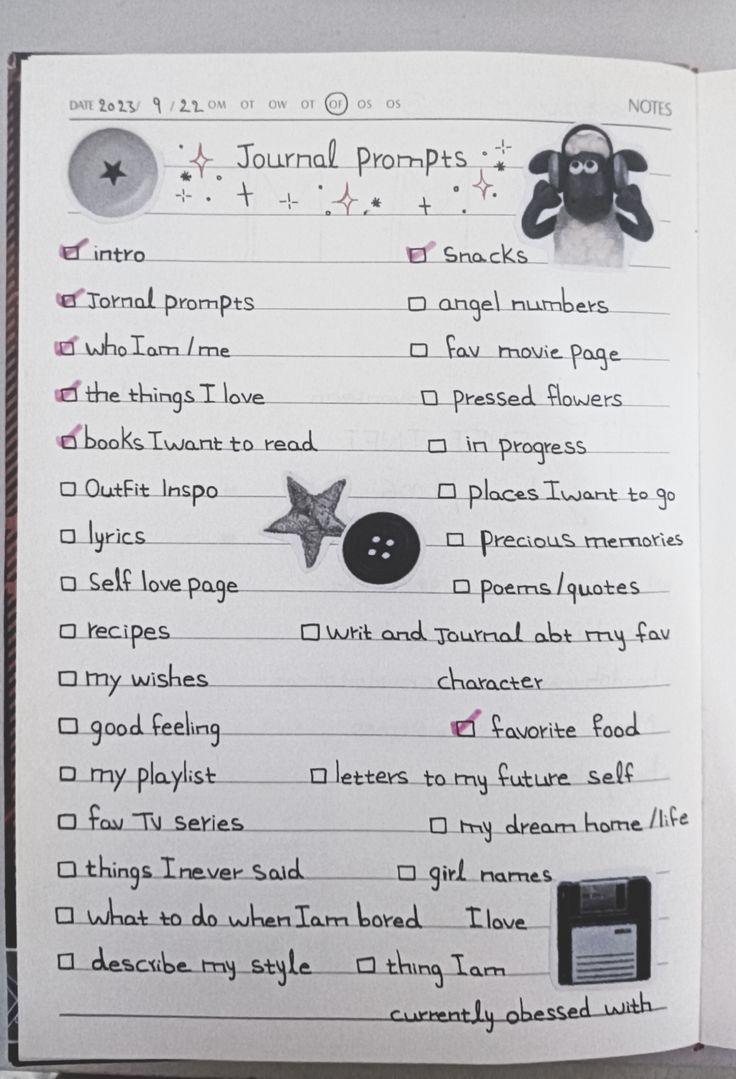 DATE 2023/ 9 / 22 OM OT OW OT OF OS OS NOTES
Journal prompts
intro
Jornal prompts
who I am / me
the things I love
books I want to read
OutFit Inspo
lyrics
Self love page
recipes
my wishes
good feeling
my playlist
fav TV series
things I never said
what to do when I am bored
describe my style
Snacks
angel numbers
fav movie page
pressed flowers
in progress
places I want to go
precious memories
poems/quotes
writ and Journal abt my fav
character
favorite food
letters to my future self
my dream home /life
girl names
I love
thing I am
currently obessed with